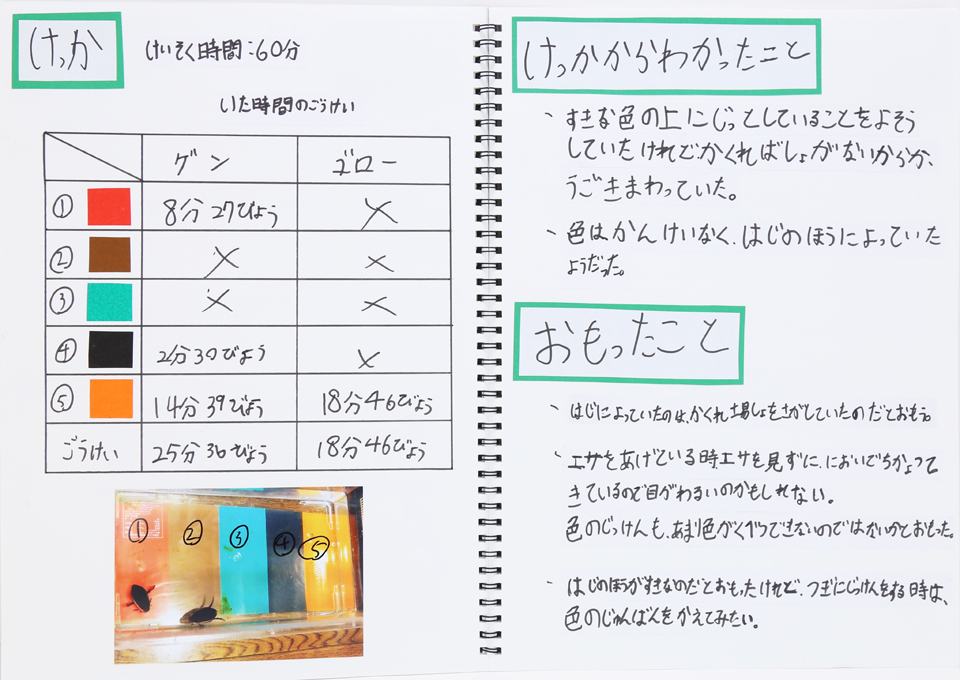 けっか
けいそく時間:60分
いた時間のごうけい
ゲン ゴロー
① 8分27びょう ×
② × ×
③ × ×
④ 2分30びょう ×
⑤ 14分39びょう 18分46びょう
ごうけい 25分36びょう 18分46びょう
① ② ③ ④ ⑤
けっかからわかったこと
、すきな色の上にじっとしていることをよそう
していたけれど、かくればしょがないからか、
うごきまわっていた。
、色はかんけいなく、はじのほうによっていた
ようだった。
おもったこと
、はじによっていたのは、かくれ場しょをさがしていたのだとおもう。
、エサをあげている時、エサを見ずに、においでちかよって
きているので目がわるいのかもしれない。
色のじっけんも、あまり色がくべつできないのではないかとおもった。
、はじのほうがすきなのだとおもったけれど、つぎにじっけんをする時は、
色のじゅんばんをかえてみたい。